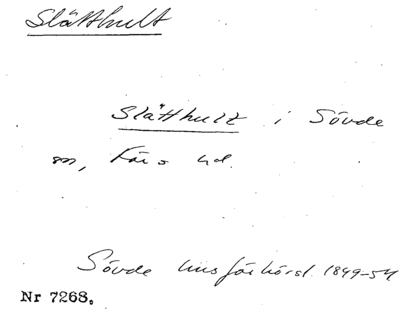 Slätthult
Slätthult i Sövde
sn, Färs hd.
Sövde husförhörsl. 1849-54
Nr 7268.